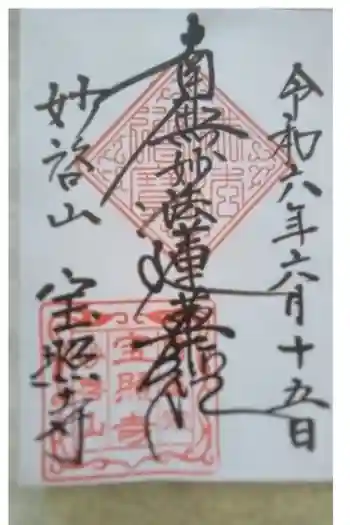 令和六年六月十五日
南無妙法蓮華経
妙詺山
宝照寺